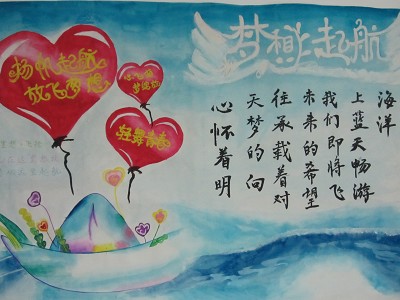 梦想起航
扬帆起航
放飞梦想
轻舞青春
心怀着明
天梦的向
往承载着对
未来的希望
我们即将飞
上蓝天畅游
海洋